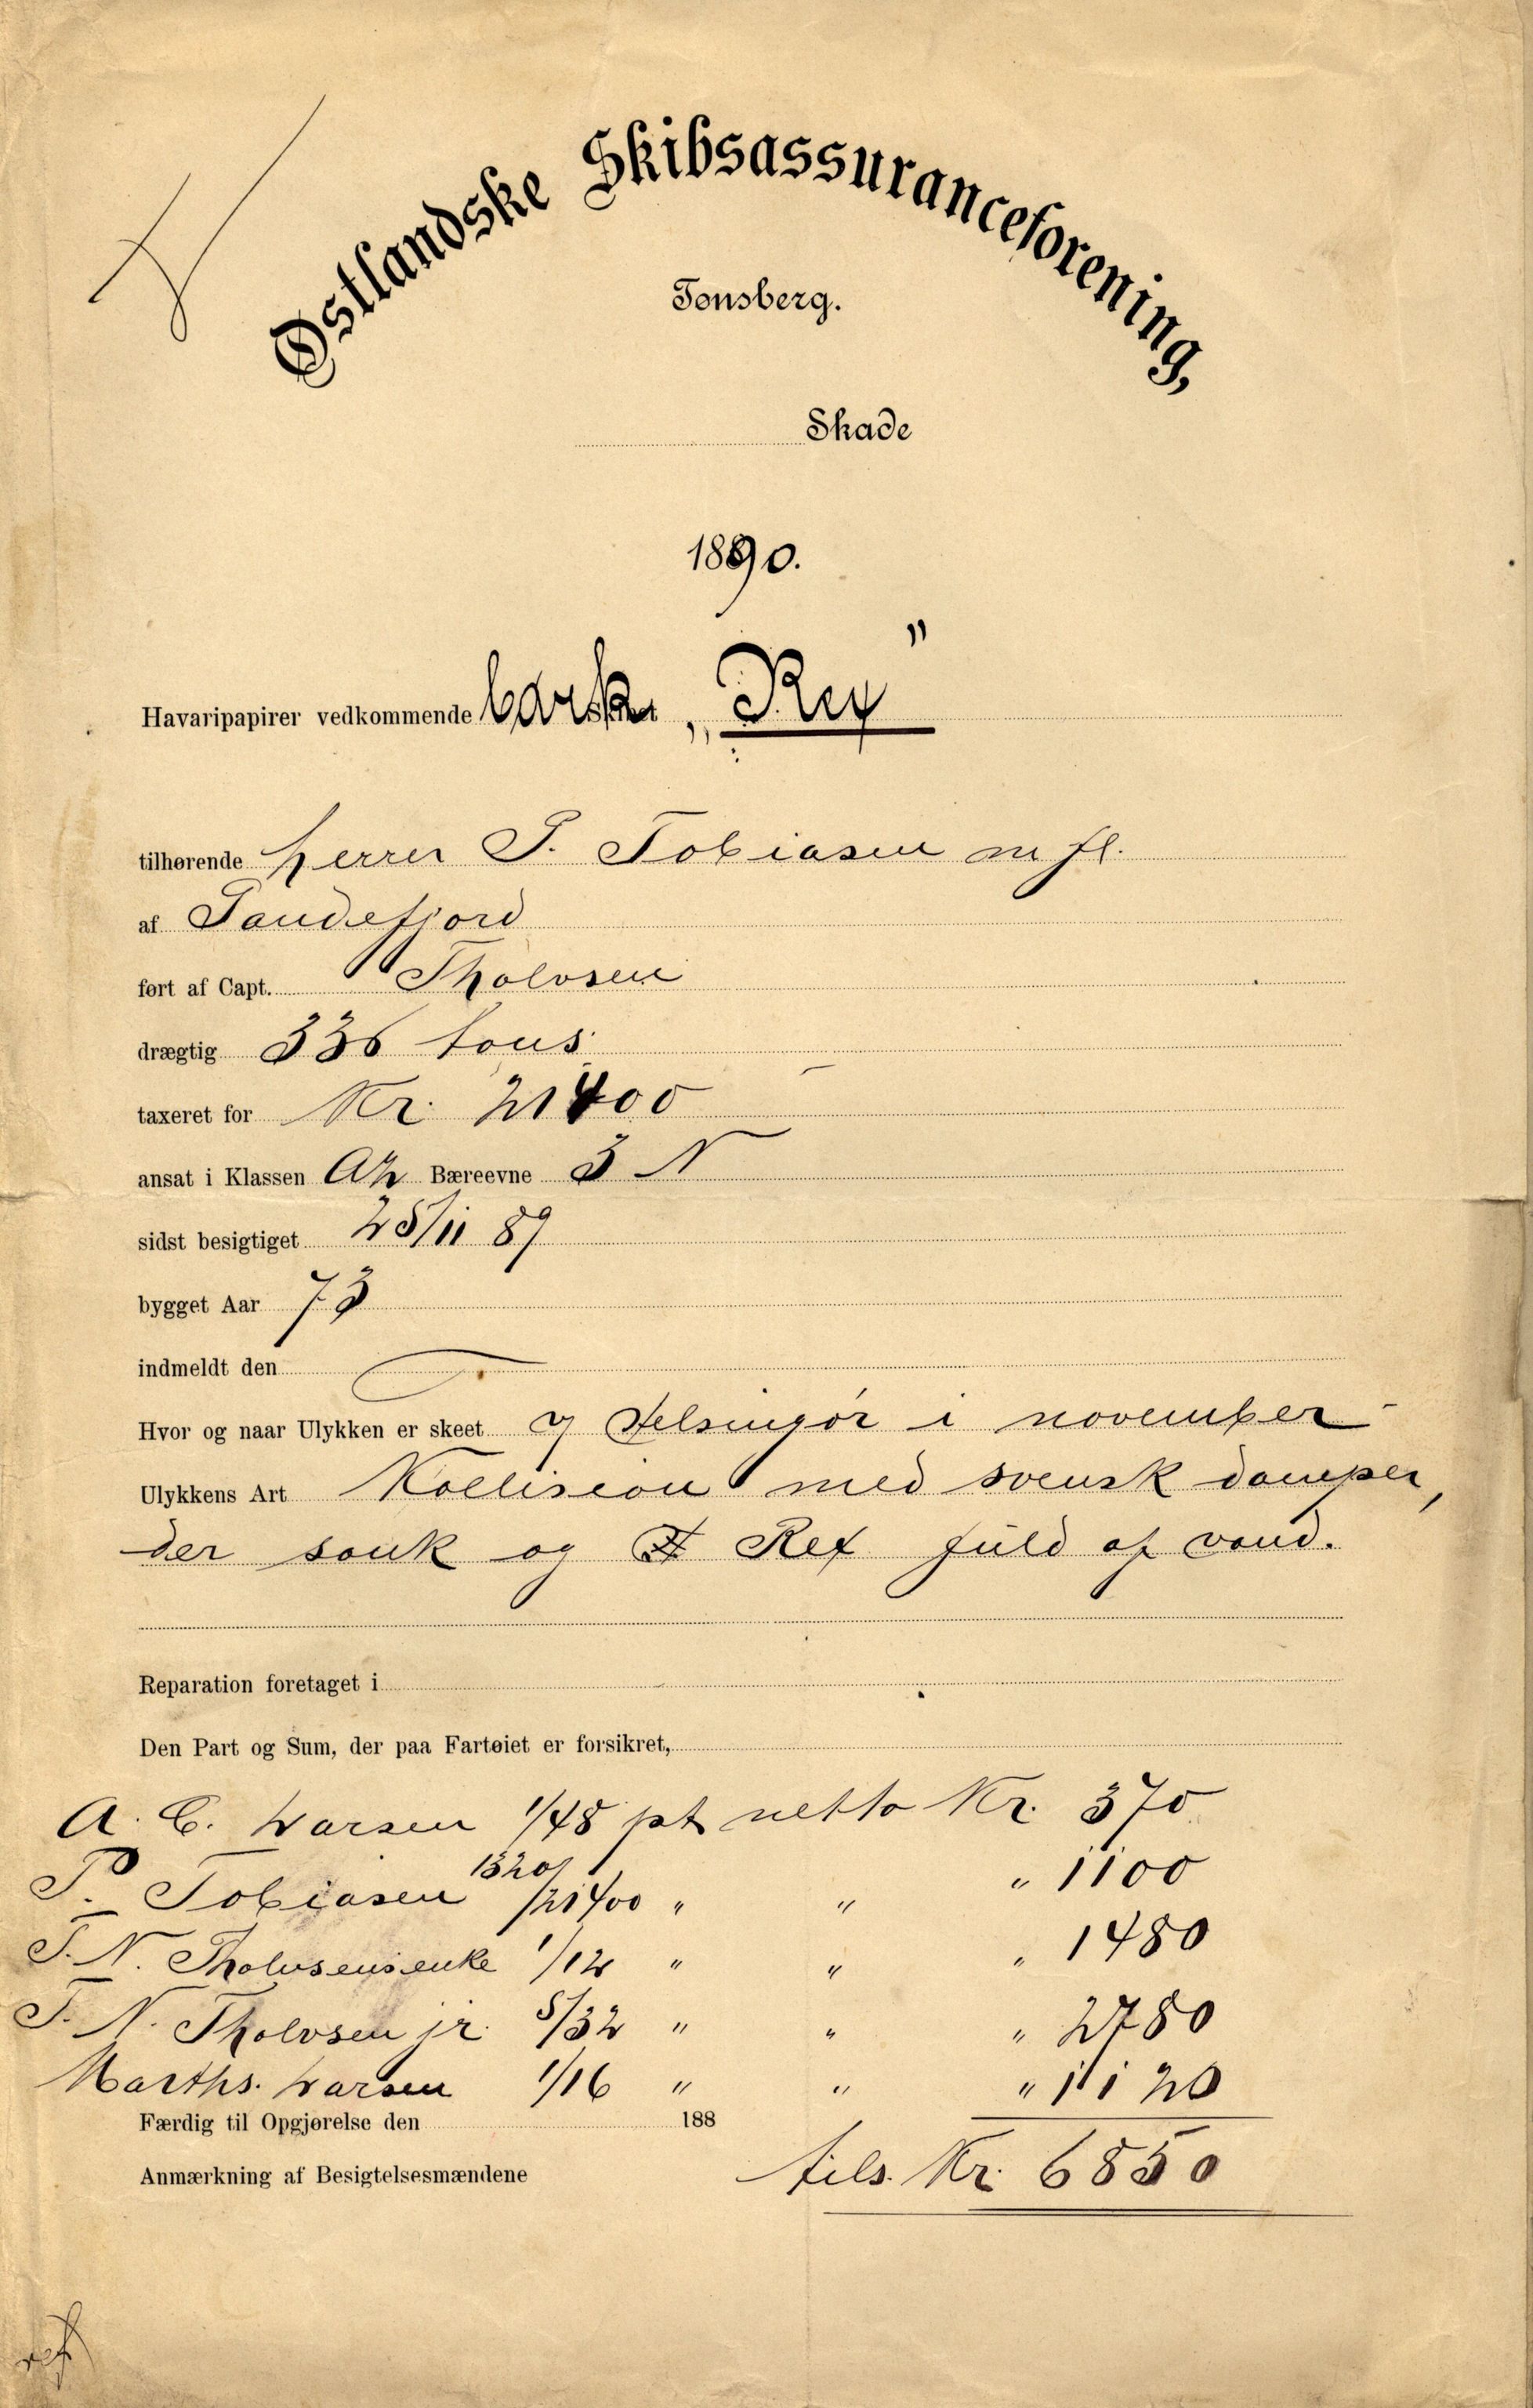 Østlandske Skibsassuranceforening,
Tønsberg.
Skade
1890.
Havaripapirer vedkommende bark „Rex"
tilhørende herrer P. Tobiasen m fl.
af Sandefjord
ført af Capt. Tholvsen
drægtig 336 tons
taxeret for Kr. 21400
ansat i Klassen A2 Bæreevne 3 N
sidst besigtiget 25/11 89
bygget Aar 73
indmeldt den
Hvor og naar Ulykken er skeet v/ Helsingör i november
Ulykkens Art Kollision med svensk damper,
der sank og Rex fuld af vand.
Reparation foretaget i
Den Part og Sum, der paa Fartøiet er forsikret,
A. C. Larsen 1/48 pt netto Kr. 370
P. Tobiasen 1320/21400 " " " 1100
T. N. Tholvsens enke 1/12 " " " 1480
T. N. Tholvsen jr. 5/32 " " " 2780
Marths. Larsen 1/16 " " " 1120
Færdig til Opgjørelse den 188
Anmærkning af Besigtelsesmændene tils. Kr. 6850